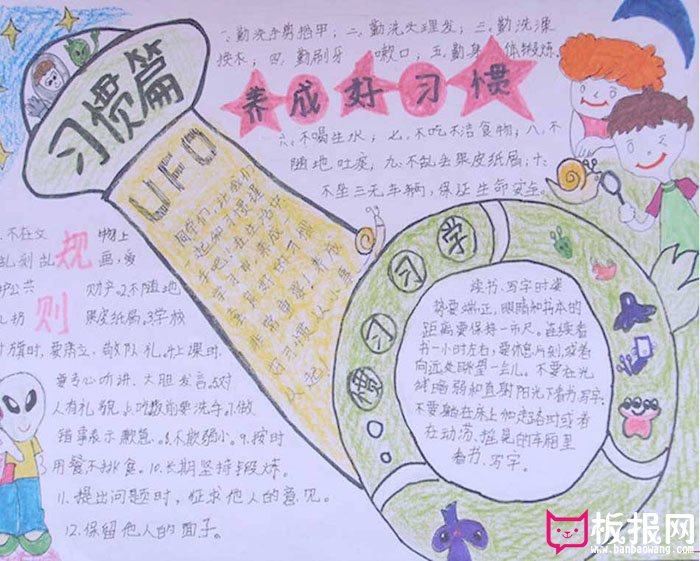 一、勤洗手剪指甲；二、勤洗头理发；三、勤洗澡
换衣；四、勤刷牙 嗽口；五、勤身体锻炼。
习惯篇
养成好习惯
六、不喝生水；七、不吃不洁食物；八、不
随地吐痰；九、不乱丢果皮纸屑；十、
不坐三元车辆，保证生命安全。
UFO
同学们，让我们
起和习惯握
手吧！在生活中
学习中养成
良好的习惯
非常重要！养成
好习惯从小事
做起！
规则
不在文物上
乱刻乱画，爱
护公共财产。2.不随地
扔果皮纸屑。3.学校
升旗时，要肃立，敬队礼。4.上课时
要专心听讲，大胆发言。5.对
人有礼貌。6.吃饭前要洗手。7.做
错事表示歉意。8.不欺弱小。9.按时
用餐不挑食。10.长期坚持锻炼。
11.提出问题时，征求他人的意见。
12.保留他人的面子。
学习习惯
读书、写字时姿
势要端正，眼睛和书本的
距离要保持一市尺。连续看
书一小时左右，要休息片刻，或者
向远处眺望一会儿。不要在光
线暗弱和直射阳光下看书、写字。
不要躺在床上和走路时或者
在动荡、摇晃的车厢里
看书、写字。
板报网
www.banbaowang.com